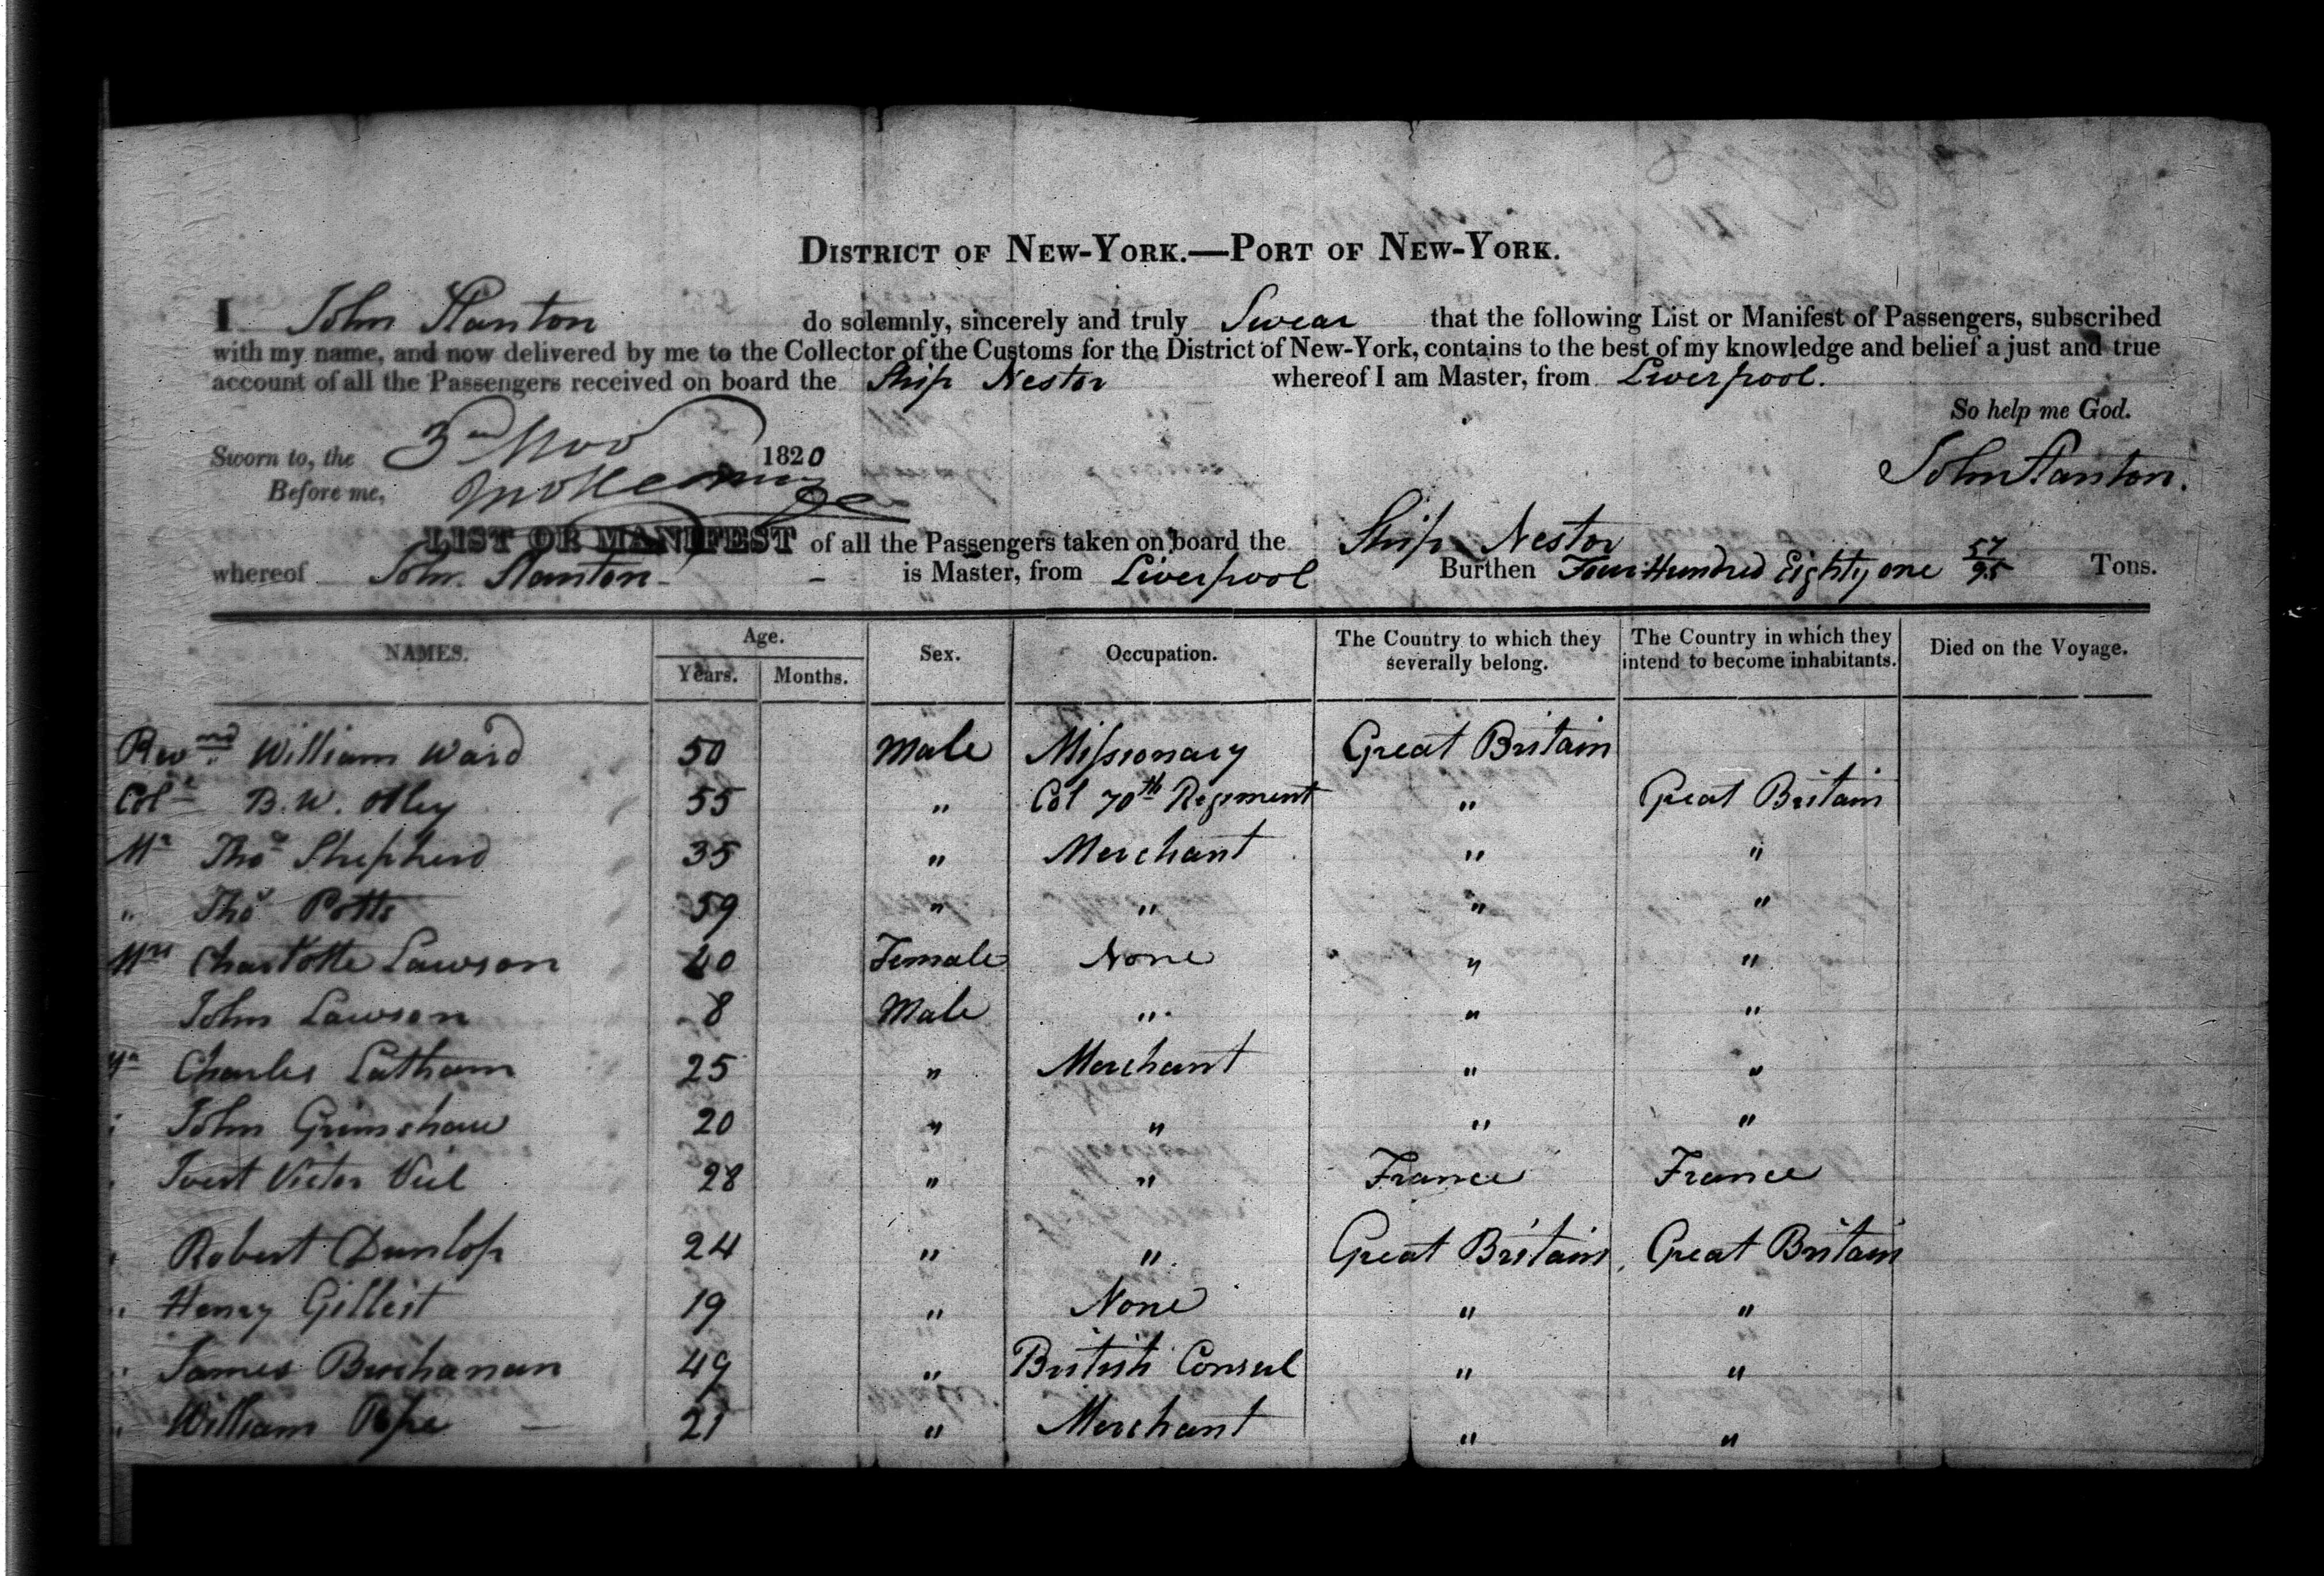 DISTRICT OF NEW-YORK.—PORT OF NEW-YORK.
I John Stanton do solemnly, sincerely and truly Swear that the following List or Manifest of Passengers, subscribed
with my name, and now delivered by me to the Collector of the Customs for the District of New-York, contains to the best of my knowledge and belief a just and true
account of all the Passengers received on board the Ship Nestor whereof I am Master, from Liverpool.
So help me God.
Sworn to, the 3rd Nov 1820
John Stanton.
Before me,
LIST OR MANIFEST of all the Passengers taken on board the Ship Nestor
whereof John Stanton - - is Master, from Liverpool Burthen Four Hundred Eighty one 57/95 Tons.
NAMES. Age. Years. Months. Sex. Occupation. The Country to which they severally belong. The Country in which they intend to become inhabitants. Died on the Voyage.
Revnd. William Ward 50 Male Missionary Great Britain
Coll B. W. Otley 55 " Col 70th Regiment " Great Britain
Mr Thos Shepherd 35 " Merchant " "
" Thos Potts 59 " " " "
Mrs Charlotte Lawson 40 Female None " "
John Lawson 8 Male " " "
Mr Charles Latham 25 " Merchant " "
" John Grimshaw 20 " " " "
" Victor 28 " " France France
" Robert Dunlop 24 " " Great Britain Great Britain
" Henry 19 " None " "
" James Buchanan 49 " British Consul " "
" William Pope — 21 " Merchant " "